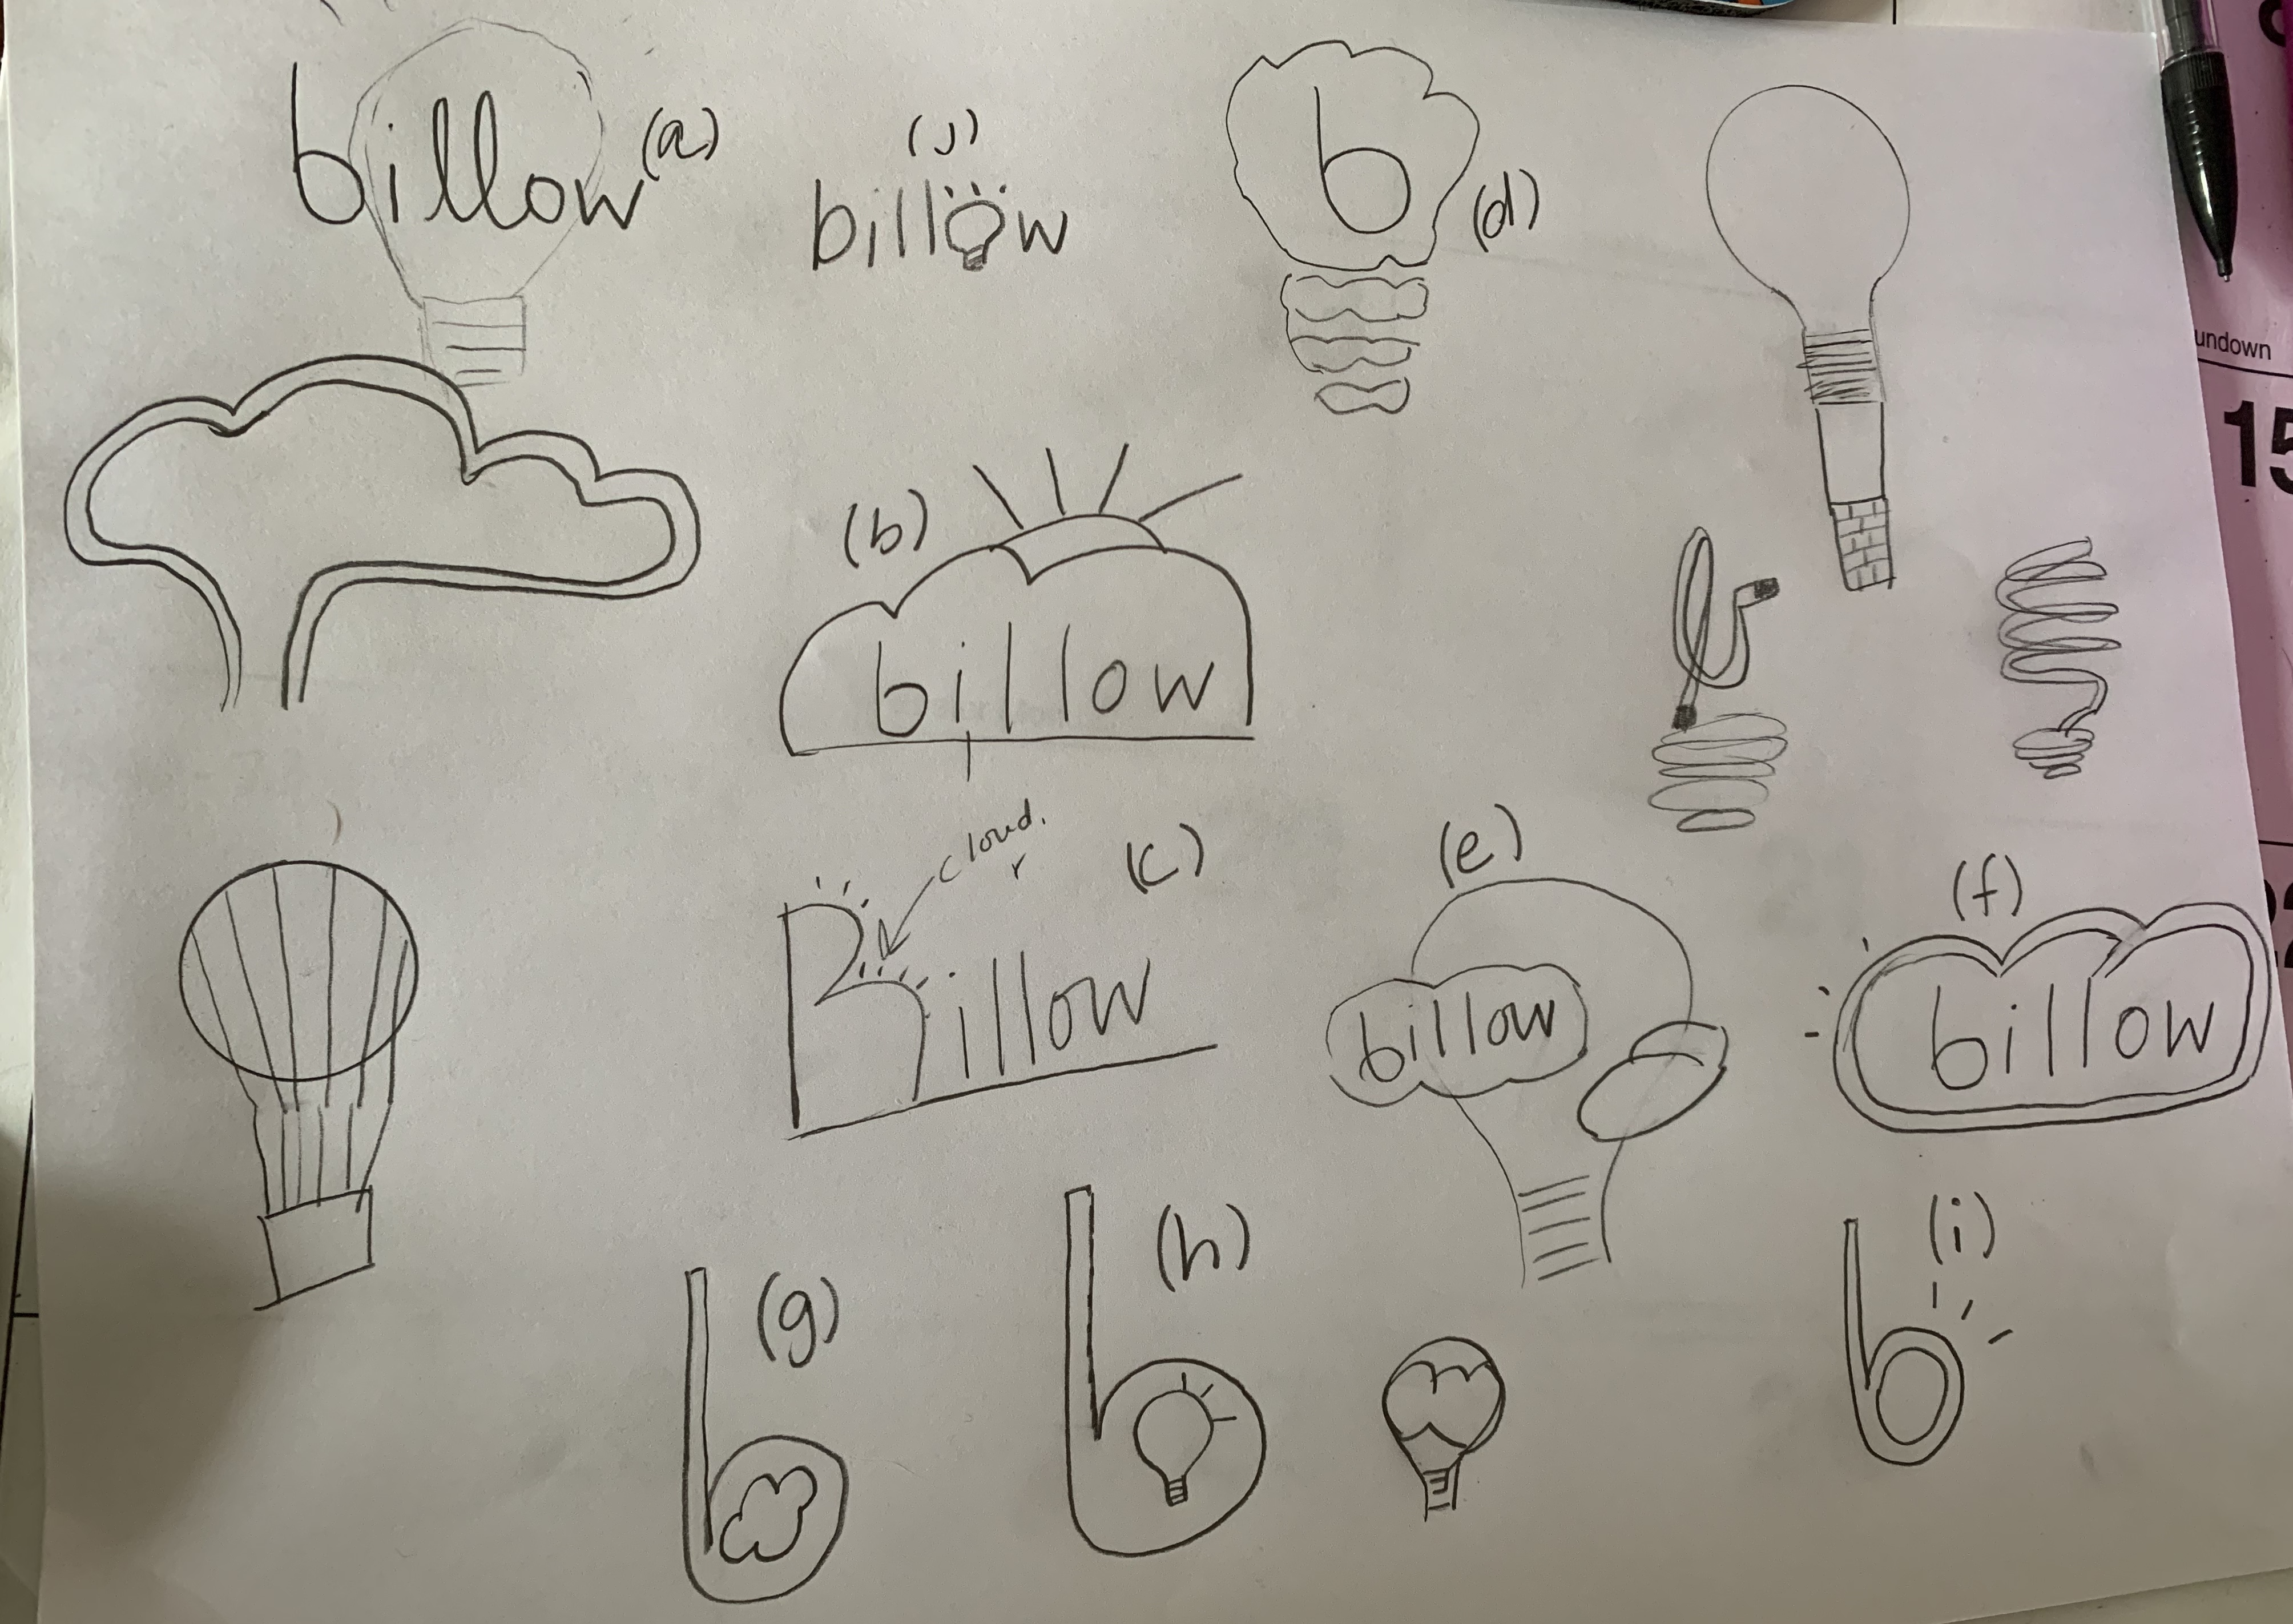 billow (a)
(j)
billow
b (d)
undown
15
(b)
billow
cloud.
(c)
Billow
(e)
billow
(f)
billow
(g)
b
(h)
b
(i)
b